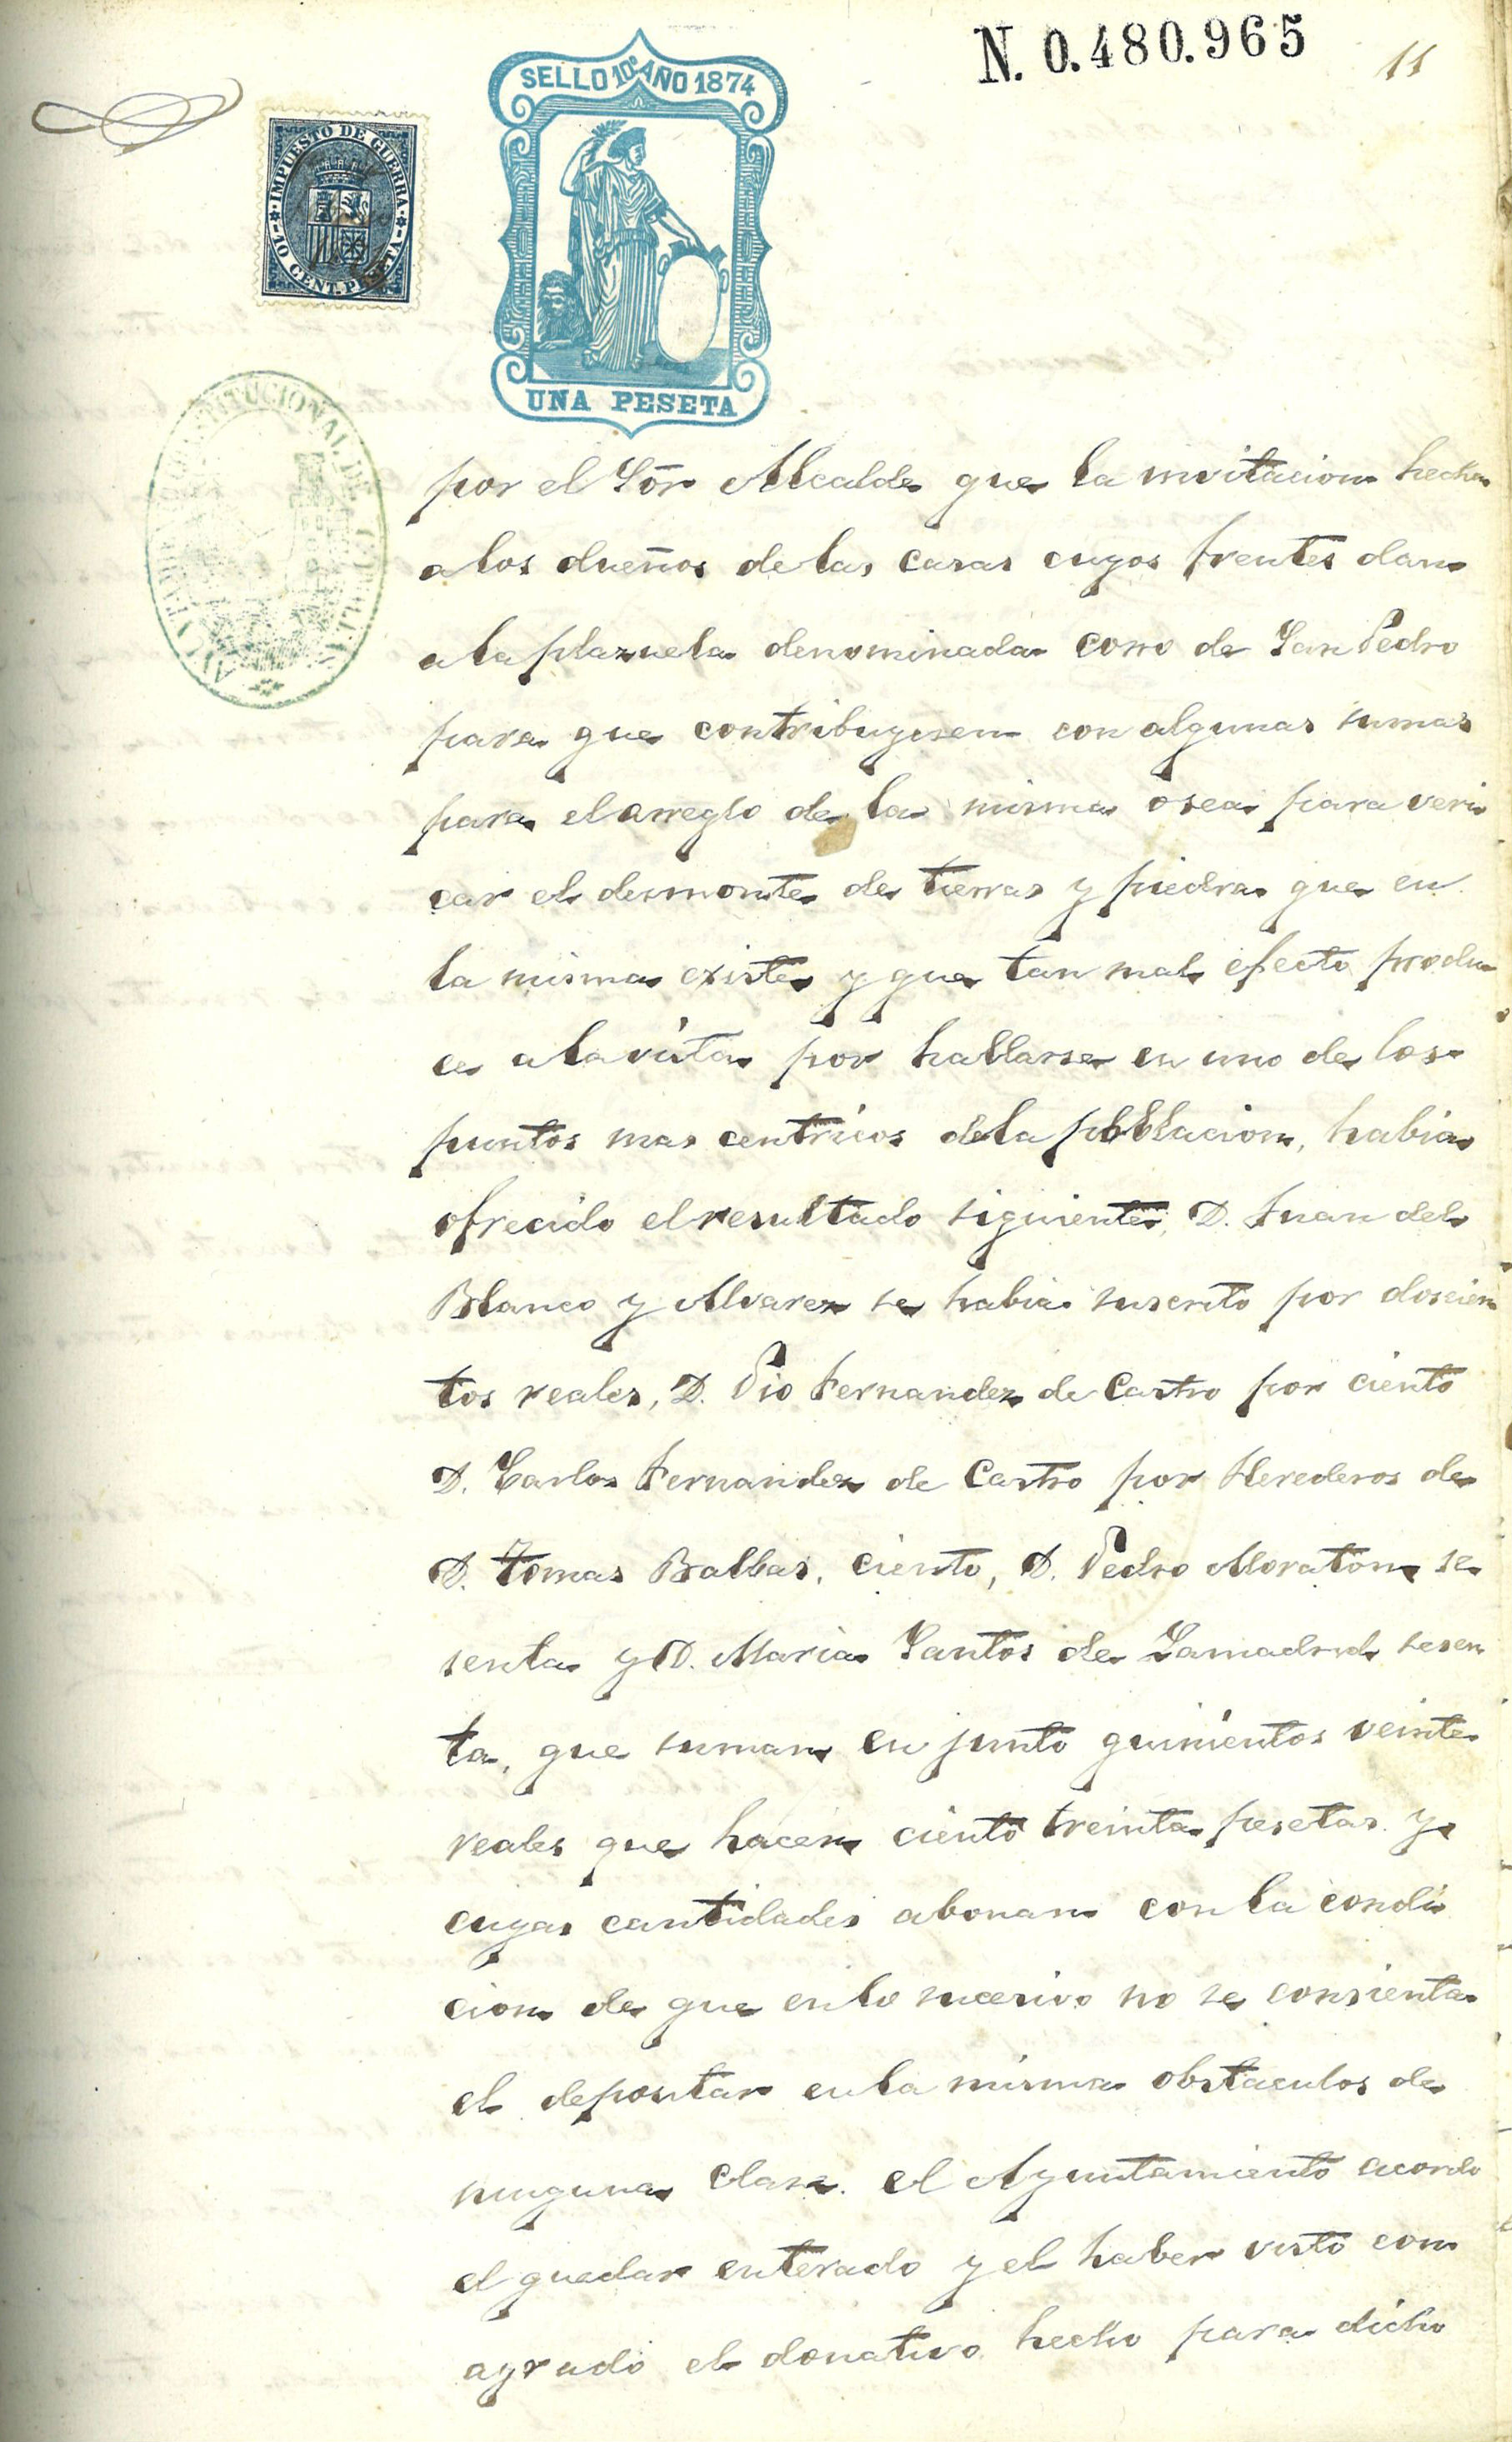 N. 0.480.965
11
SELLO 10º AÑO 1874
IMPUESTO DE GUERRA
10 CENT. PESETA
UNA PESETA
CONSTITUCIONAL DE
por el Sõr Alcalde que la invitacion hecha
a los dueños de las casas cuyos frentes dan
a la plazuela denominada corro de San Pedro
para que contribuyesen con algunas sumas
para el arreglo de la misma osea para veri
car el desmonte de tierras y piedra que en
la misma existe y que tan mal efecto produ
ce a la vista por hallarse en uno de los
puntos mas centricos de la poblacion, habia
ofrecido el resultado siguiente, D. Juan del
Blanco y Alvarez se habia suscrito por doscien
tos reales, D. Pio Fernandez de Castro por ciento
D. Carlos Fernandez de Castro por Herederos de
D. Tomas Balbas, ciento, D. Pedro Moraton se
senta y D. Maria Santos de Lamadrid sesen
ta, que suman en junto quinientos veinte
reales que hacen ciento treinta pesetas y
cuyas cantidades abonan con la condi
cion de que en lo sucesivo no se consienta
el depositar en la misma obstaculos de
ninguna clase. el Ayuntamiento acordo
el quedar enterado y el haber visto con
agrado el donativo hecho para dicho